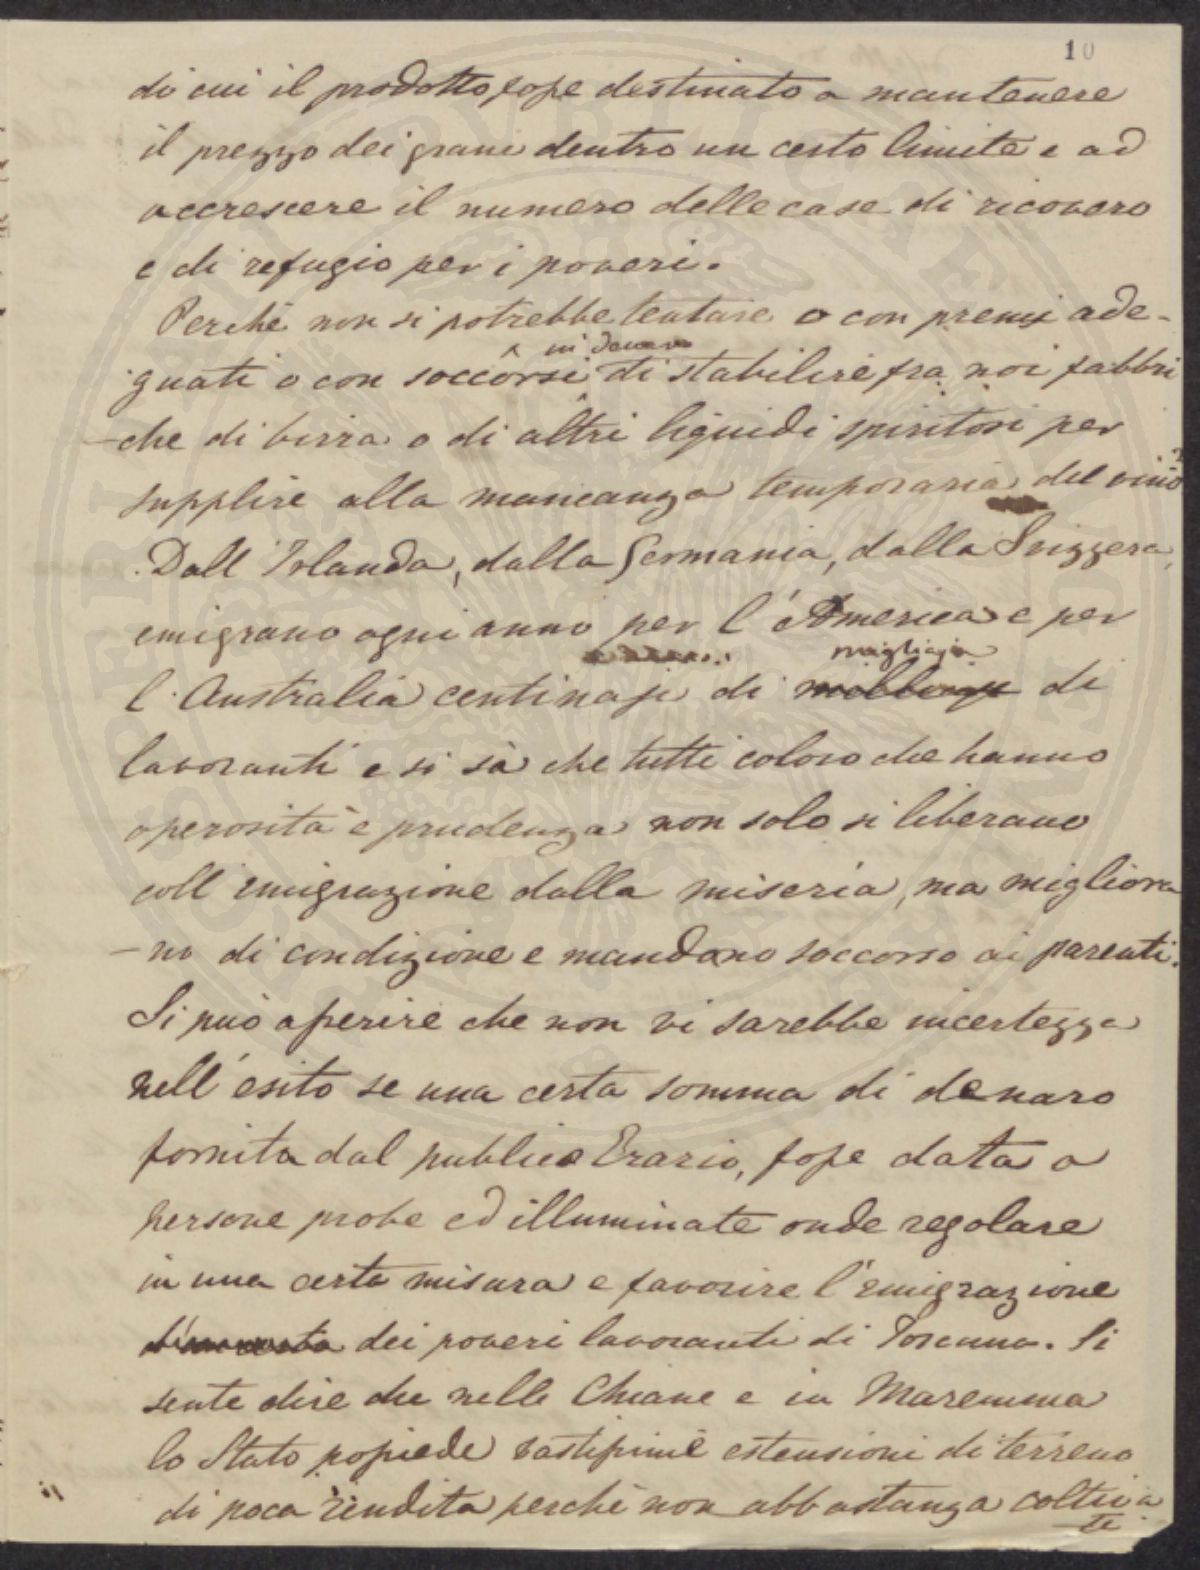 10
di cui il prodotto fosse destinato a mantenere
il prezzo dei grani dentro un certo limite e ad
accrescere il numero delle case di ricovero
e di refugio per i poveri.
Perchè non si potrebbe tentare o con premi ade-
guati o con soccorsi in denaro di stabilire fra noi fabbri
-che di birra o di altri liquidi spiritosi per
supplire alla mancanza temporaria del vino?
Dall'Irlanda, dalla Germania, dalla Svizzera,
emigrano ogni anno per l'America e per
l'Australia centinaje di migliaja di
lavoranti e si sà che tutti coloro che hanno
operosità e prudenza non solo si liberano
coll'emigrazione dalla miseria, ma migliora
-no di condizione e mandano soccorso ai parenti.
Si può asserire che non vi sarebbe incertezza
nell'esito se una certa somma di denaro
fornita dal publico Erario, fosse data a
persone probe ed illuminate onde regolare
in una certa misura e favorire l'emigrazione
dei poveri lavoranti di Toscana. Si
sente dire che nelle Chiane e in Maremma
lo Stato possiede vastissime estensioni di terreno
di poca rendita perchè non abbastanza coltiva
te.